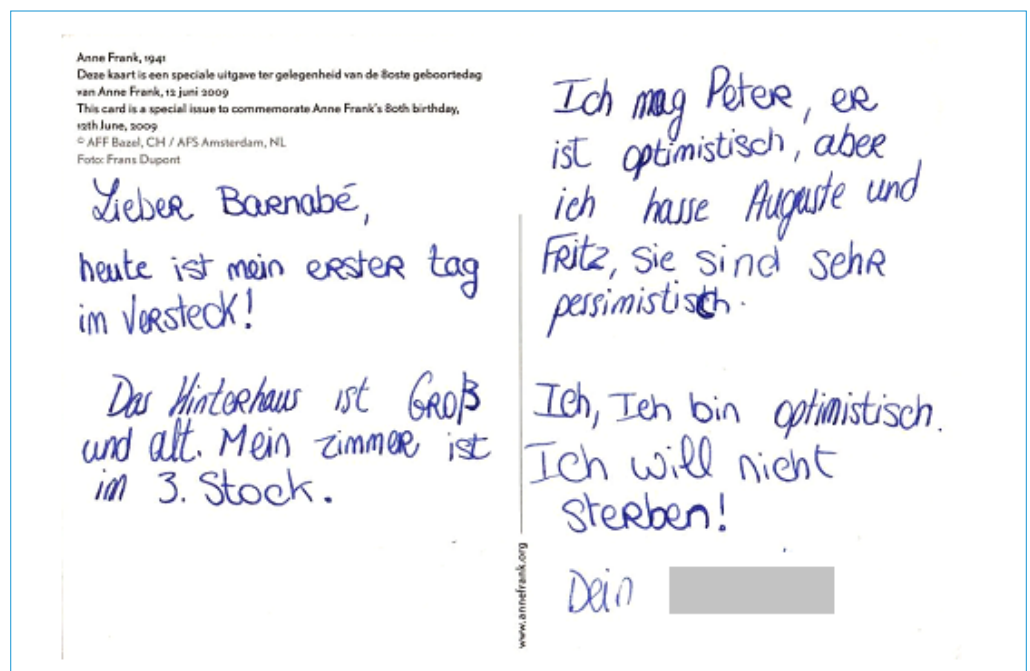 Anne Frank, 1941
Deze kaart is een speciale uitgave ter gelegenheid van de 80ste geboortedag
van Anne Frank, 12 juni 2009
This card is a special issue to commemorate Anne Frank's 80th birthday,
12th June, 2009
© AFF Bazel, CH / AFS Amsterdam, NL
Foto: Frans Dupont
Lieber Barnabé,
heute ist mein erster tag
im Versteck!
Das Hinterhaus ist Groß
und alt. Mein zimmer ist
im 3. Stock.
www.annefrank.org
Ich mag Peter, er
ist optimistisch, aber
ich hasse Auguste und
Fritz, sie sind sehr
pessimistisch.
Ich, Ich bin optimistisch.
Ich will nicht
sterben!
Dein